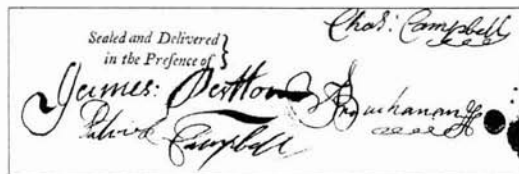 Chas: Campbell
Sealed and Delivered
in the Presence of
James:
Buchanan
Campbell